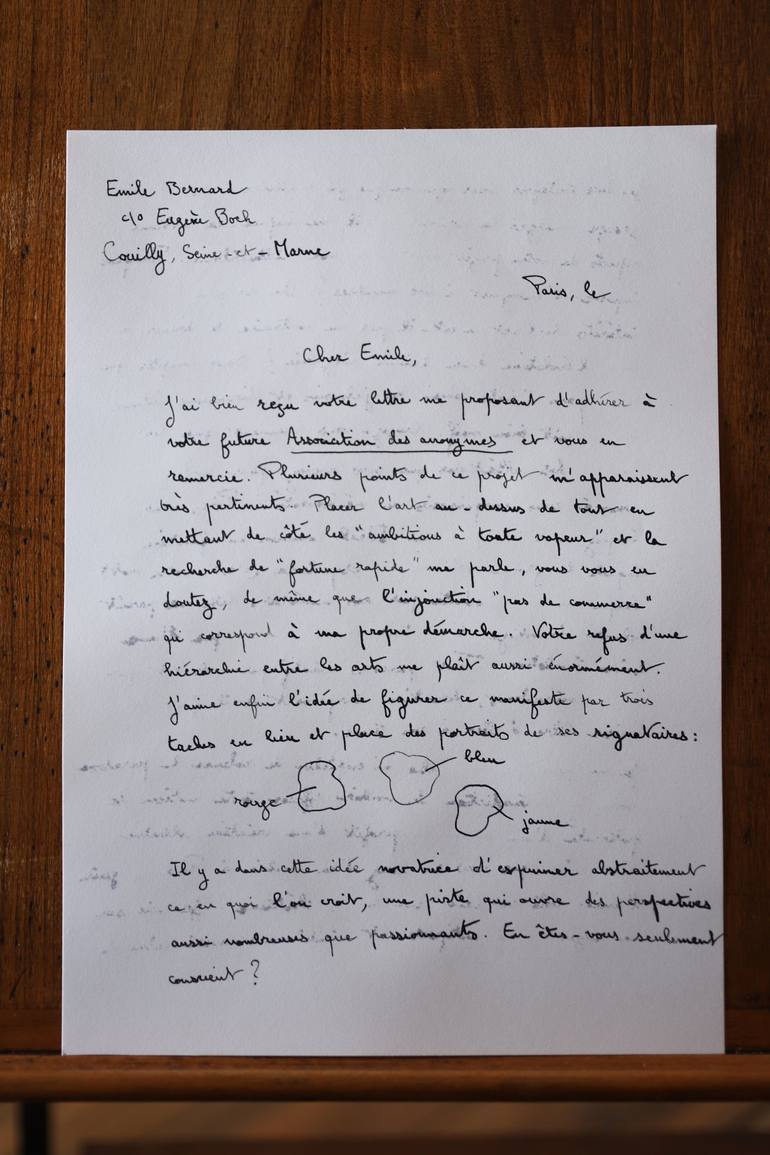 Emile Bernard
c/o Eugène Boch
Couilly, Seine-et-Marne
Paris, le
Cher Emile,
J'ai bien reçu votre lettre me proposant d'adhérer à
votre future Association des anonymes et vous en
remercie. Plusieurs points de ce projet m'apparaissent
très pertinents. Placer l'art au-dessus de tout en
mettant de côté les "ambitions à toute vapeur" et la
recherche de "fortune rapide" me parle, vous vous en
doutez, de même que l'injonction "pas de commerce"
qui correspond à ma propre démarche. Votre refus d'une
hiérarchie entre les arts me plaît aussi énormément.
J'aime enfin l'idée de figurer ce manifeste par trois
taches en lieu et place des portraits de ses signataires:
bleu
rouge
jaune
Il y a dans cette idée novatrice d'exprimer abstraitement
ce en quoi l'on croit, une piste qui ouvre des perspectives
aussi nombreuses que passionnants. En êtes-vous seulement
conscient ?